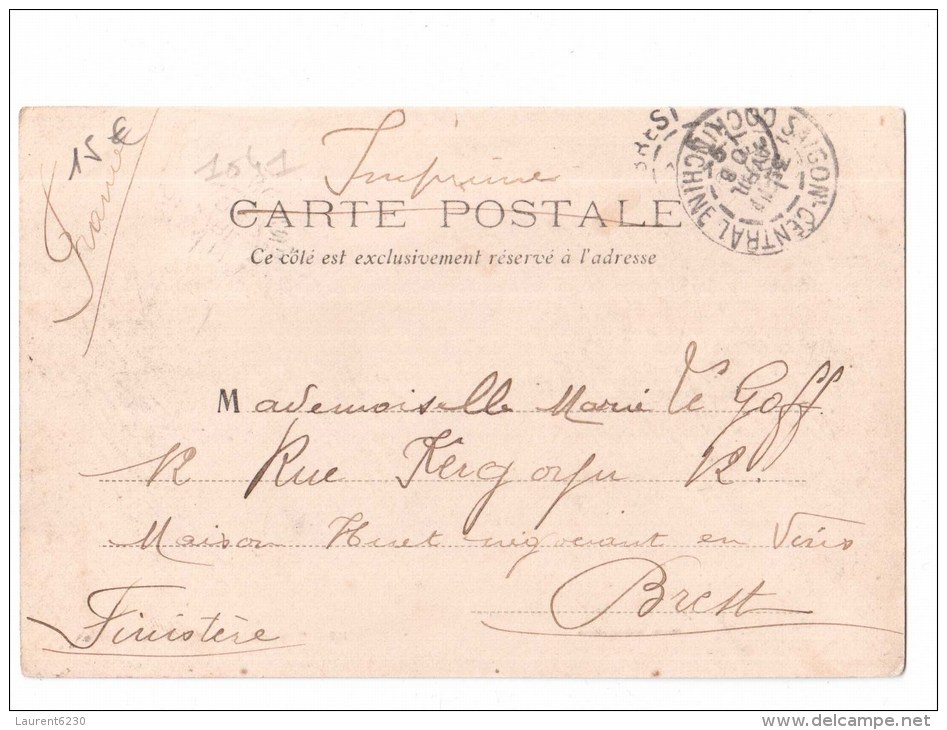 15 €
France
1041
Imprimé
BREST
SAIGON-CENTRAL
COCHINCHINE
AVRIL
CARTE POSTALE
Ce côté est exclusivement réservé à l'adresse
Mademoiselle Marie Le Goff
12 Rue Kergorju 12.
Maison Huet négociant en Vins
Brest
Finistère
Laurent6230
www.delcampe.net